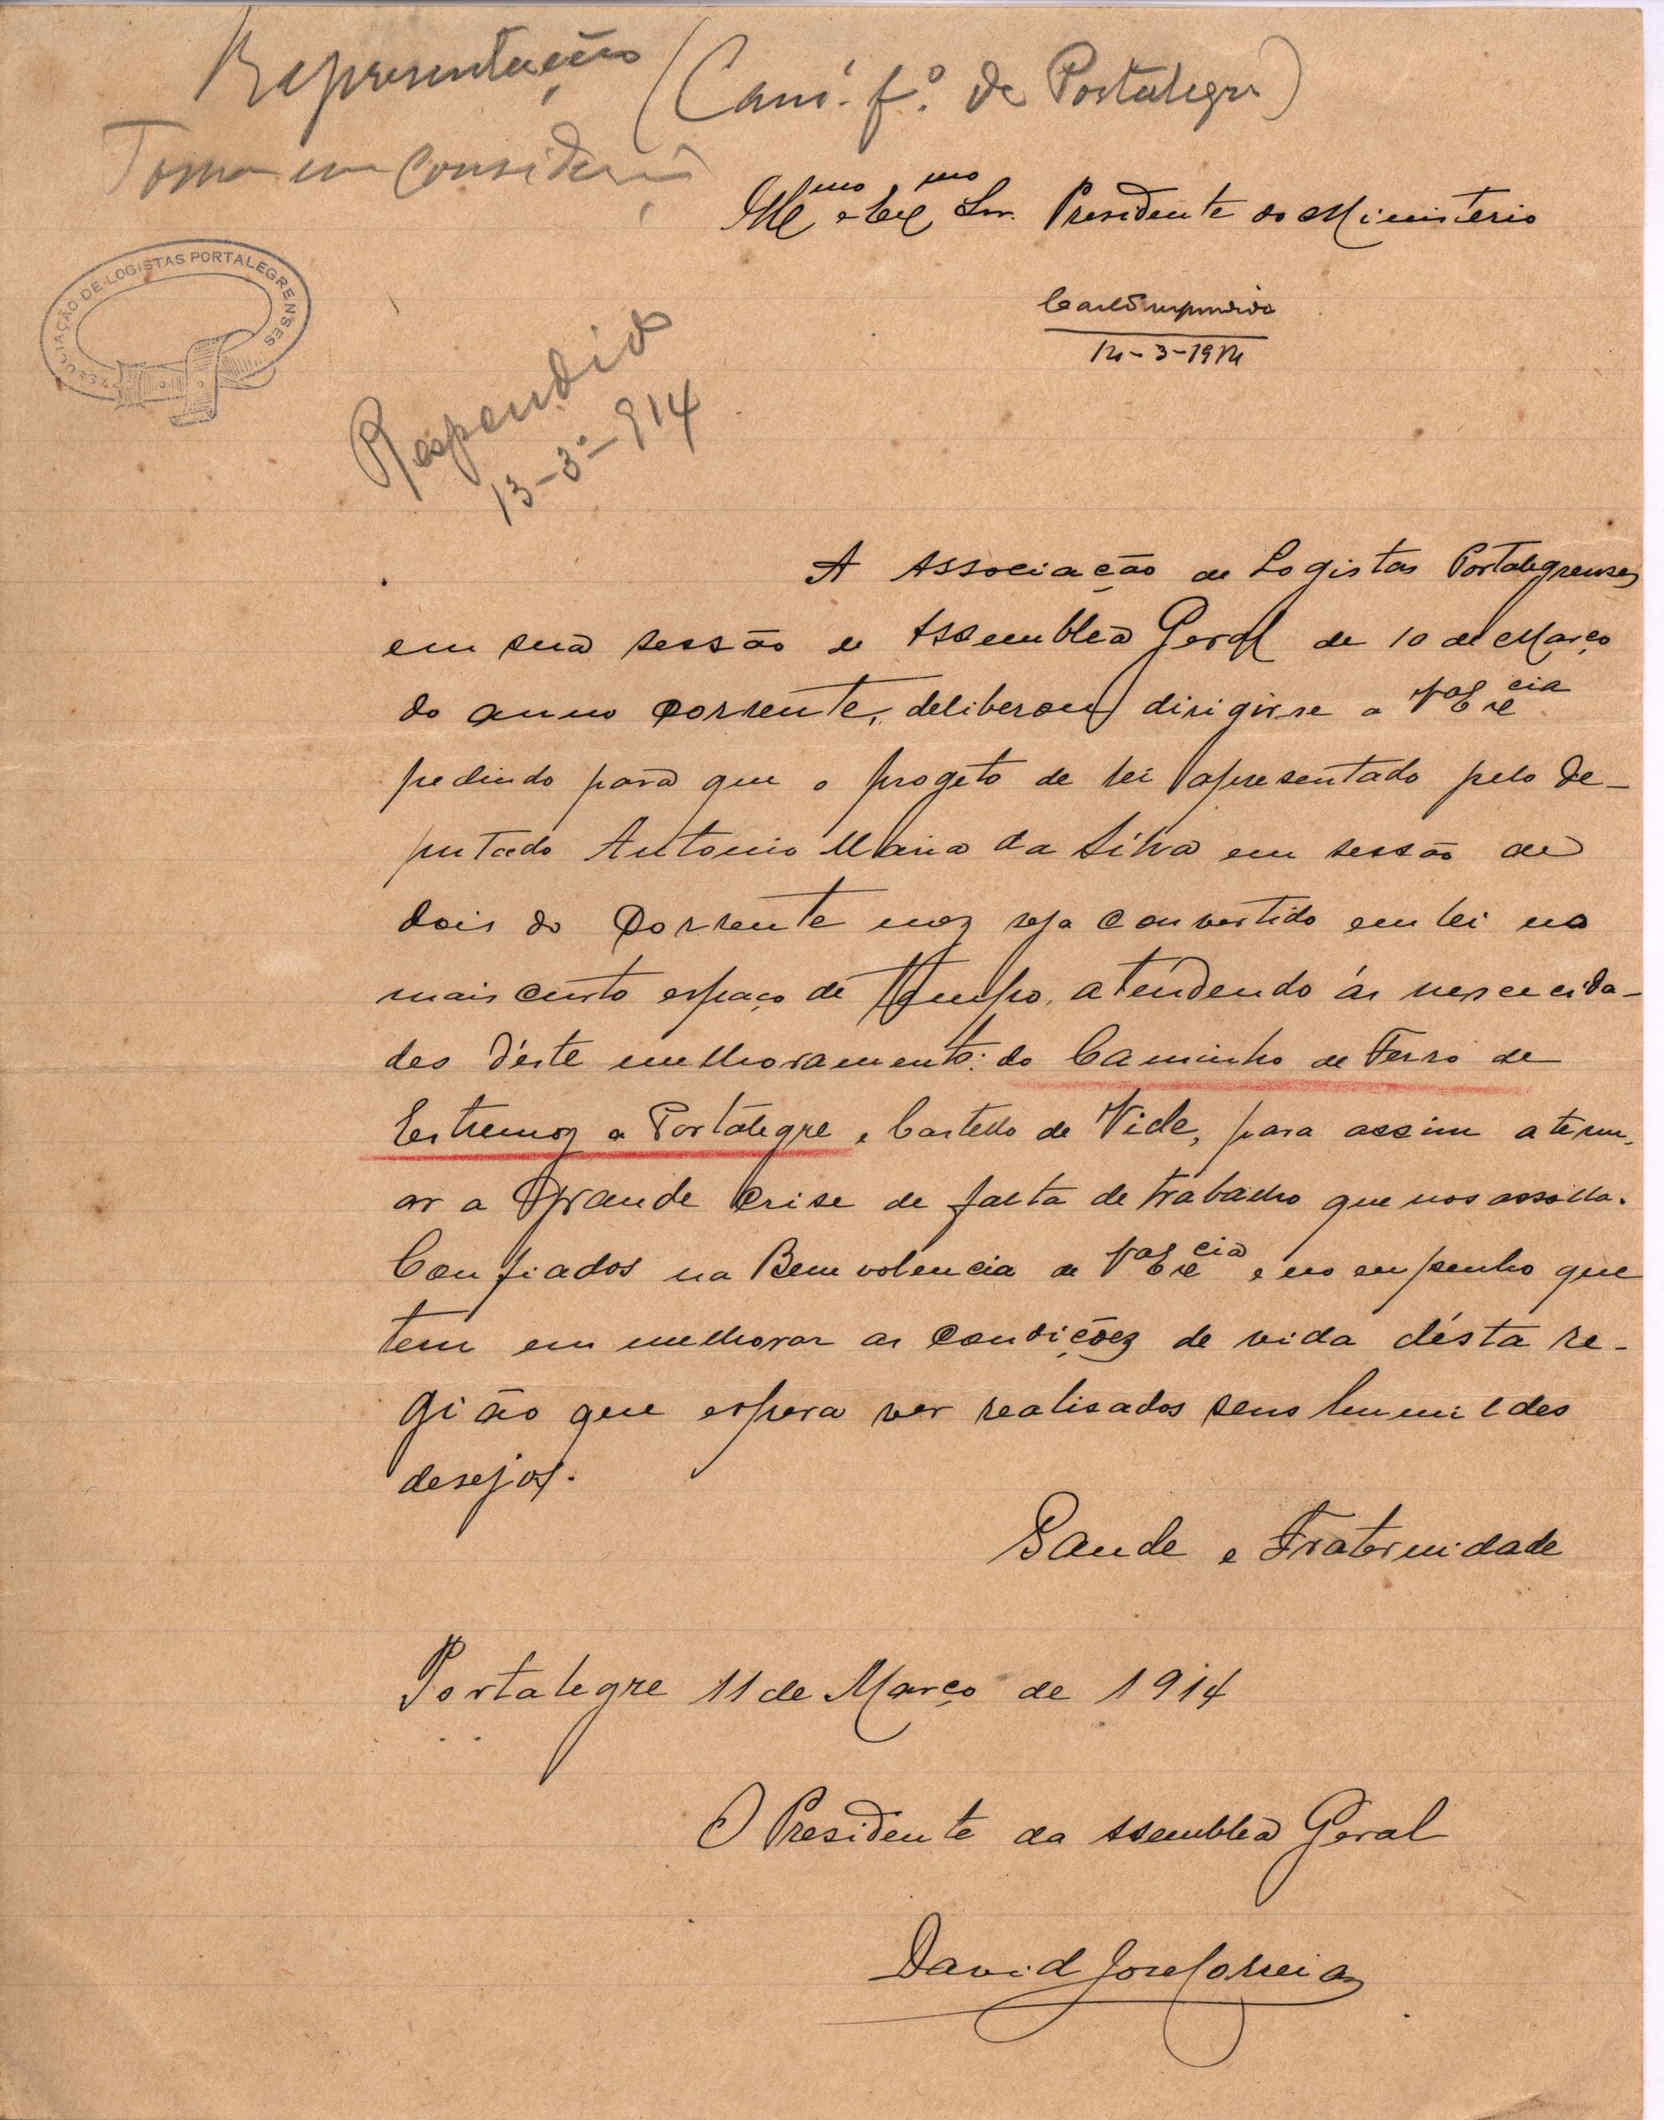 Representação (Cam.º f.º de Portalegre)
Tomar em consideração
Illmo e Exmo Snr. Presidente do Ministerio
ASSOCIAÇÃO DE LOGISTAS PORTALEGRENSES
14-3-1914
Respondido
13-3º-914
A Associação de Logistas Portalegrenses
em sua sessão de Assemblea Geral de 10 de Março
do anno corrente, deliberou dirigir-se a VªExcia
pedindo para que o progeto de lei apresentado pelo de-
putado Antonio Maria da Silva em sessão de
dois do corrente mez seja convertido em lei no
mais curto espaço de tempo, atendendo ás nescecida-
des d'éste melhoramento: do Caminho de Ferro de
Estremoz a Portalegre e Castello de Vide, para assim atenu-
ar a grande crise de falta de trabalho que nos assolla.
Confiados na Bemvolencia de VªExcia e no empenho que
tem em melhorar as condiçõez de vida désta re-
gião que espera ver realisados seus humildes
desejos.
Saude e Fraternidade
Portalegre 11 de Março de 1914
O Presidente da Assemblea Geral
David José Correia